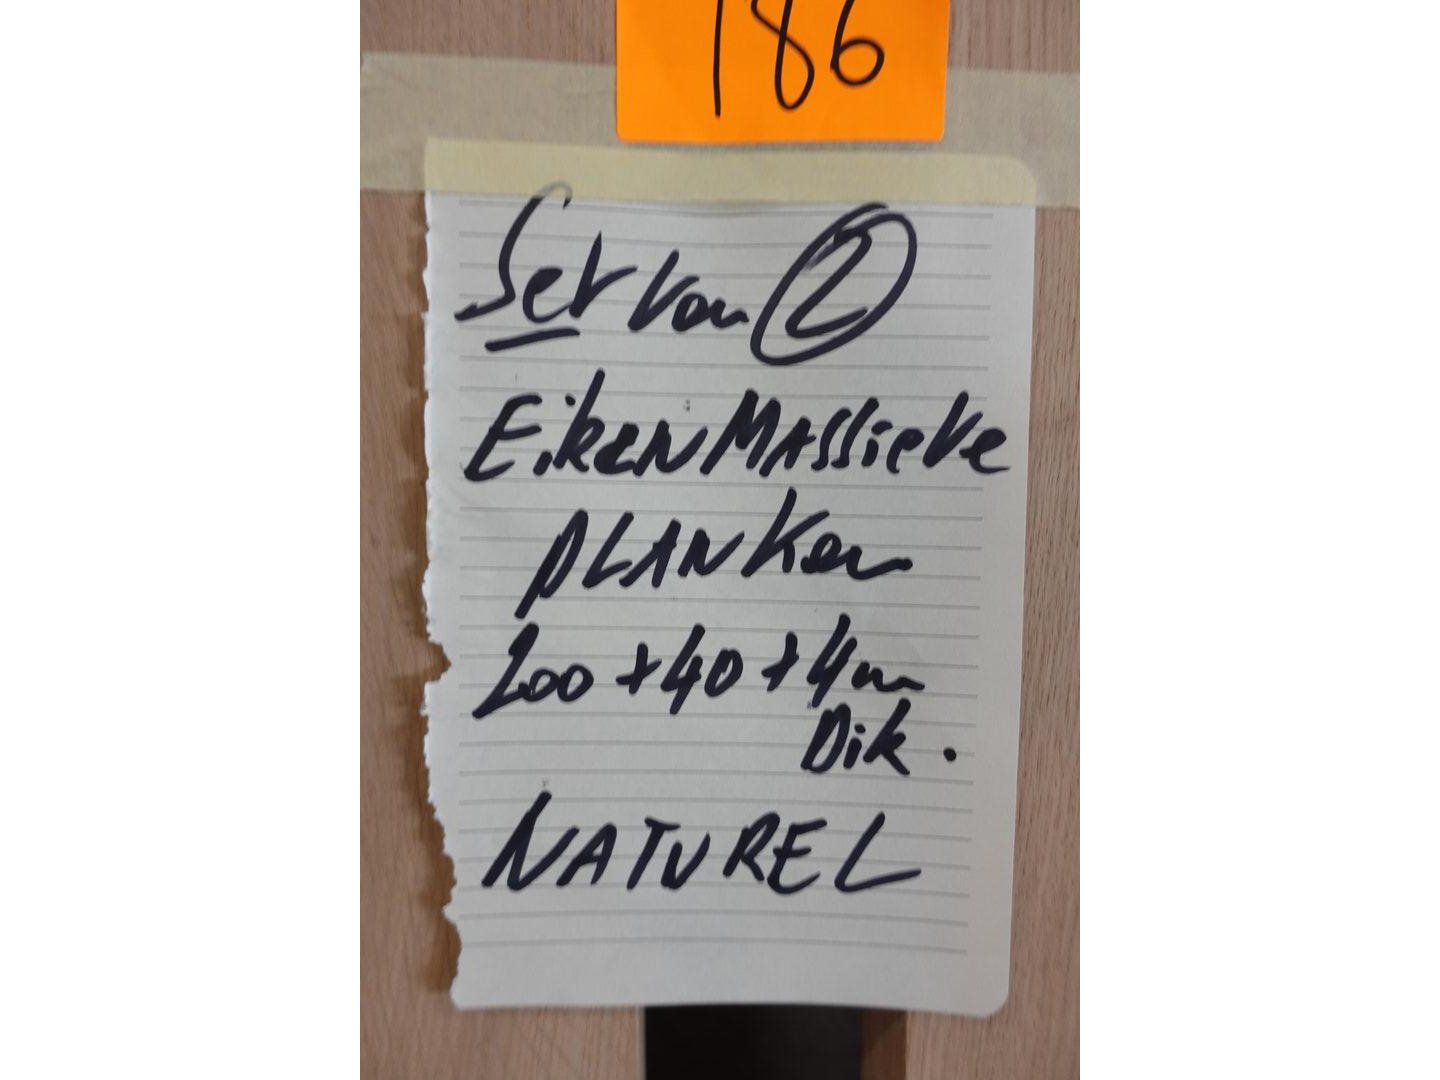 186
Set van 2
Eiken MASSieve
PLANKen
200 + 40 + 4 cm
Dik.
NATUREL